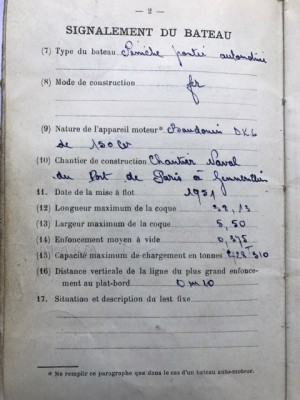 — 2 —
SIGNALEMENT DU BATEAU
(7) Type du bateau Péniche pontée automotrice
(8) Mode de construction fer
(9) Nature de l'appareil moteur* Baudouin DK6
de 150 CV
(10) Chantier de construction Chantier Naval
du Port de Paris à Gennevilliers
11. Date de la mise à flot. 1951
(12) Longueur maximum de la coque 38,13
(13) Largeur maximum de la coque 5,50
(14) Enfoncement moyen à vide 0,375
(15) Capacité maximum de chargement en tonnes 310
(16) Distance verticale de la ligne du plus grand enfonce-
ment au plat-bord 0m10
17. Situation et description du lest fixe
* Ne remplir ce paragraphe que dans le cas d'un bateau auto-moteur.